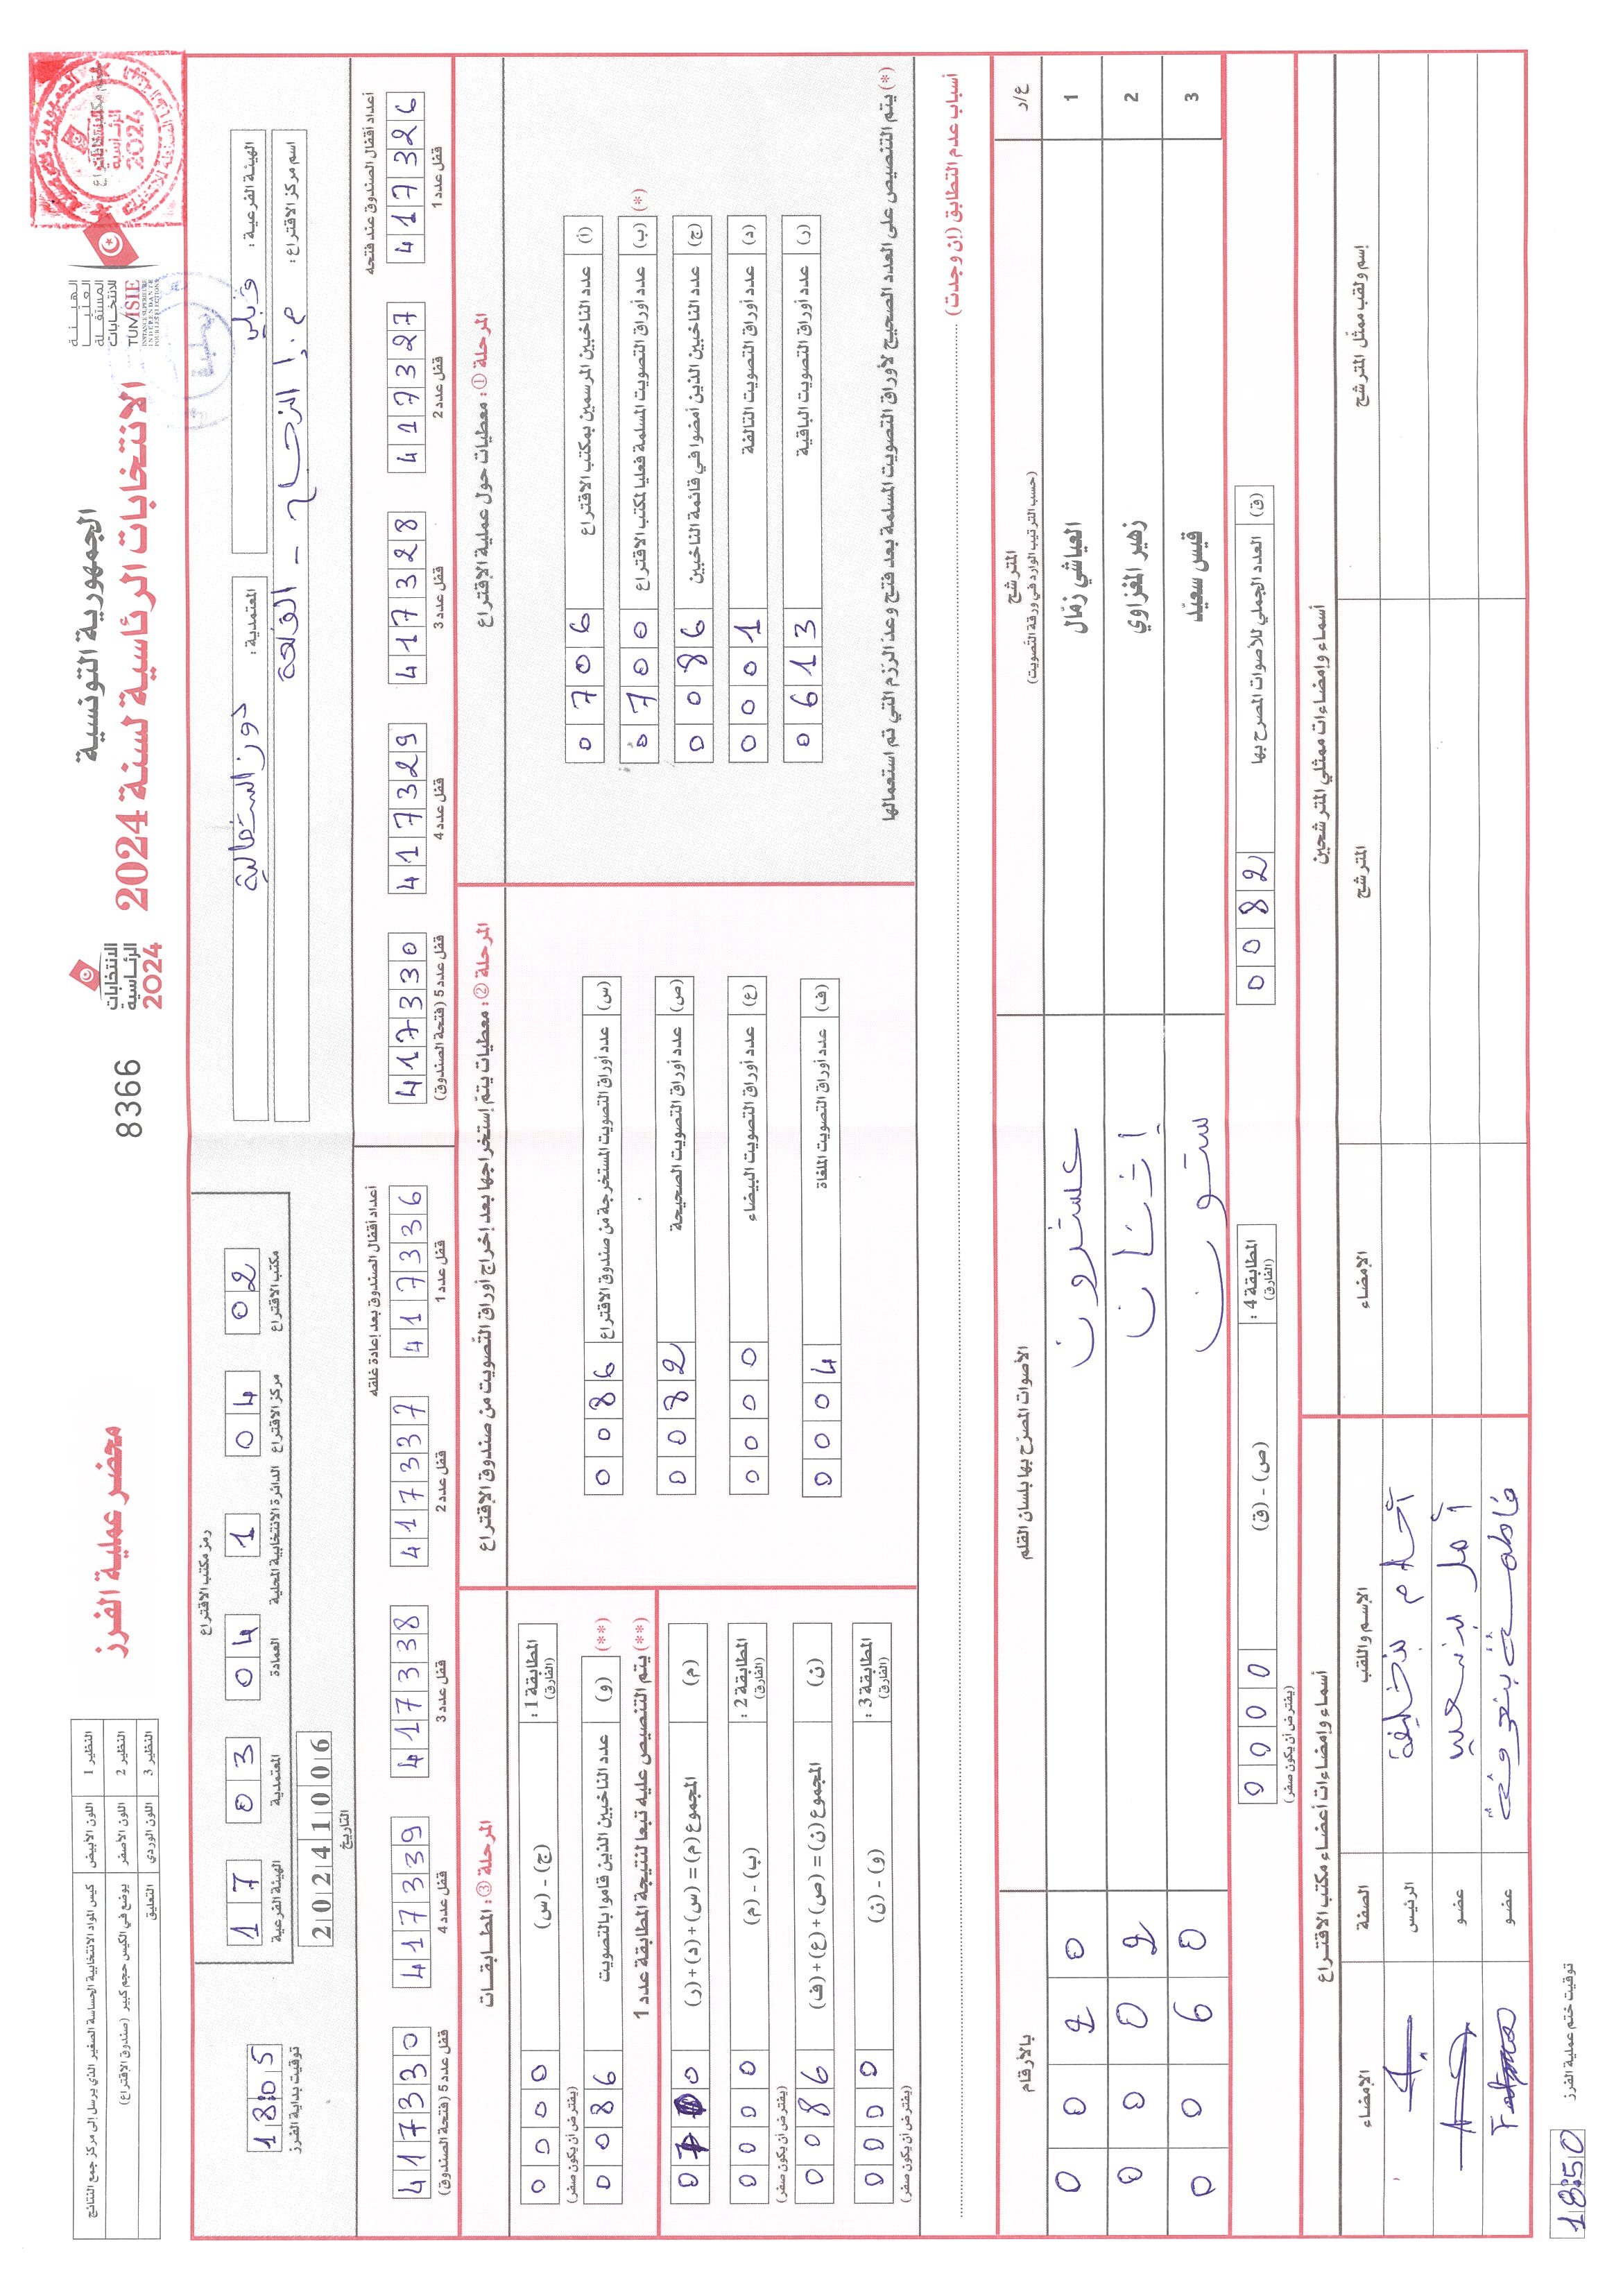 الجمهورية التونسية
الانتخابات الرئاسية لسنة 2024
الهيئة العليا المستقلة للانتخابات
TUNISIE
INSTANCE SUPERIEURE INDEPENDANTE POUR LES ELECTIONS
ختم مكتب الاقتراع
الانتخابات الرئاسية 2024
8366
محضر عملية الفرز
النظير 1 اللون الأبيض كيس المواد الانتخابية الحساسة الصغير الذي يرسل إلى مركز جمع النتائج
النظير 2 اللون الأصفر يوضع في الكيس حجم كبير (صندوق الاقتراع)
النظير 3 اللون الوردي التعليق
الهيئة الفرعية : قبلي
المعتمدية : دوز الشمالية
اسم مركز الاقتراع : م.إ النجاح - القلعة
رمز مكتب الاقتراع
مكتب الاقتراع 02
مركز الاقتراع 04
الدائرة الانتخابية المحلية 1
العمادة 04
المعتمدية 03
الهيئة الفرعية 17
التاريخ 20241006
توقيت بداية الفرز 18:05
أعداد أقفال الصندوق عند فتحه
قفل عدد 1 417326
قفل عدد 2 417327
قفل عدد 3 417328
قفل عدد 4 417329
قفل عدد 5 (فتحة الصندوق) 417330
أعداد أقفال الصندوق بعد إعادة غلقه
قفل عدد 1 417336
قفل عدد 2 417337
قفل عدد 3 417338
قفل عدد 4 417339
قفل عدد 5 (فتحة الصندوق) 417330
المرحلة ① : معطيات حول عملية الاقتراع
(أ) عدد الناخبين المرسمين بمكتب الاقتراع 0706
(ب) عدد أوراق التصويت المسلمة فعليا لمكتب الاقتراع 0700 (*)
(ج) عدد الناخبين الذين أمضوا في قائمة الناخبين 0086
(د) عدد أوراق التصويت التالفة 0001
(ر) عدد أوراق التصويت الباقية 0613
(*) يتم التنصيص على العدد الصحيح لأوراق التصويت المسلمة بعد فتح وعد الرزم التي تم استعمالها
المرحلة ② : معطيات يتم إستخراجها بعد إخراج أوراق التصويت من صندوق الاقتراع
(س) عدد أوراق التصويت المستخرجة من صندوق الاقتراع 0086
(ص) عدد أوراق التصويت الصحيحة 0082
(ع) عدد أوراق التصويت البيضاء 0000
(ف) عدد أوراق التصويت الملغاة 0004
المرحلة ③ : المطابقات
المطابقة 1 : (الفارق) (ج) - (س) 0000
(يفترض أن يكون صفر)
(**) (و) عدد الناخبين الذين قاموا بالتصويت 0086
(**) يتم التنصيص عليه تبعا لنتيجة المطابقة عدد 1
(م) المجموع (م) = (س) + (د) + (ر) 0700
المطابقة 2 : (الفارق) (ب) - (م) 0000
(يفترض أن يكون صفر)
(ن) المجموع (ن) = (ص) + (ع) + (ف) 0086
المطابقة 3 : (الفارق) (و) - (ن) 0000
(يفترض أن يكون صفر)
أسباب عدم التطابق (إن وجدت)
ع/ر
المترشح
(حسب الترتيب الوارد في ورقة التصويت)
الأصوات المصرّح بها بلسان القلم
بالأرقام
1 العياشي زمّال عشرون 0020
2 زهير المغزاوي إثنان 0002
3 قيس سعيّد ستون 0060
(ق) العدد الجملي للأصوات المصرح بها 0082
المطابقة 4 : (الفارق) (ص) - (ق) 0000
(يفترض أن يكون صفر)
أسماء وإمضاءات ممثلي المترشحين
إسم ولقب ممثل المترشح المترشح الإمضاء
أسماء وإمضاءات أعضاء مكتب الاقتراع
الإسم واللقب الصفة الإمضاء
أحلام بنخليفة الرئيس
أمل بنسعيد عضو
فاطمة عضو Fatma
توقيت ختم عملية الفرز 18:50